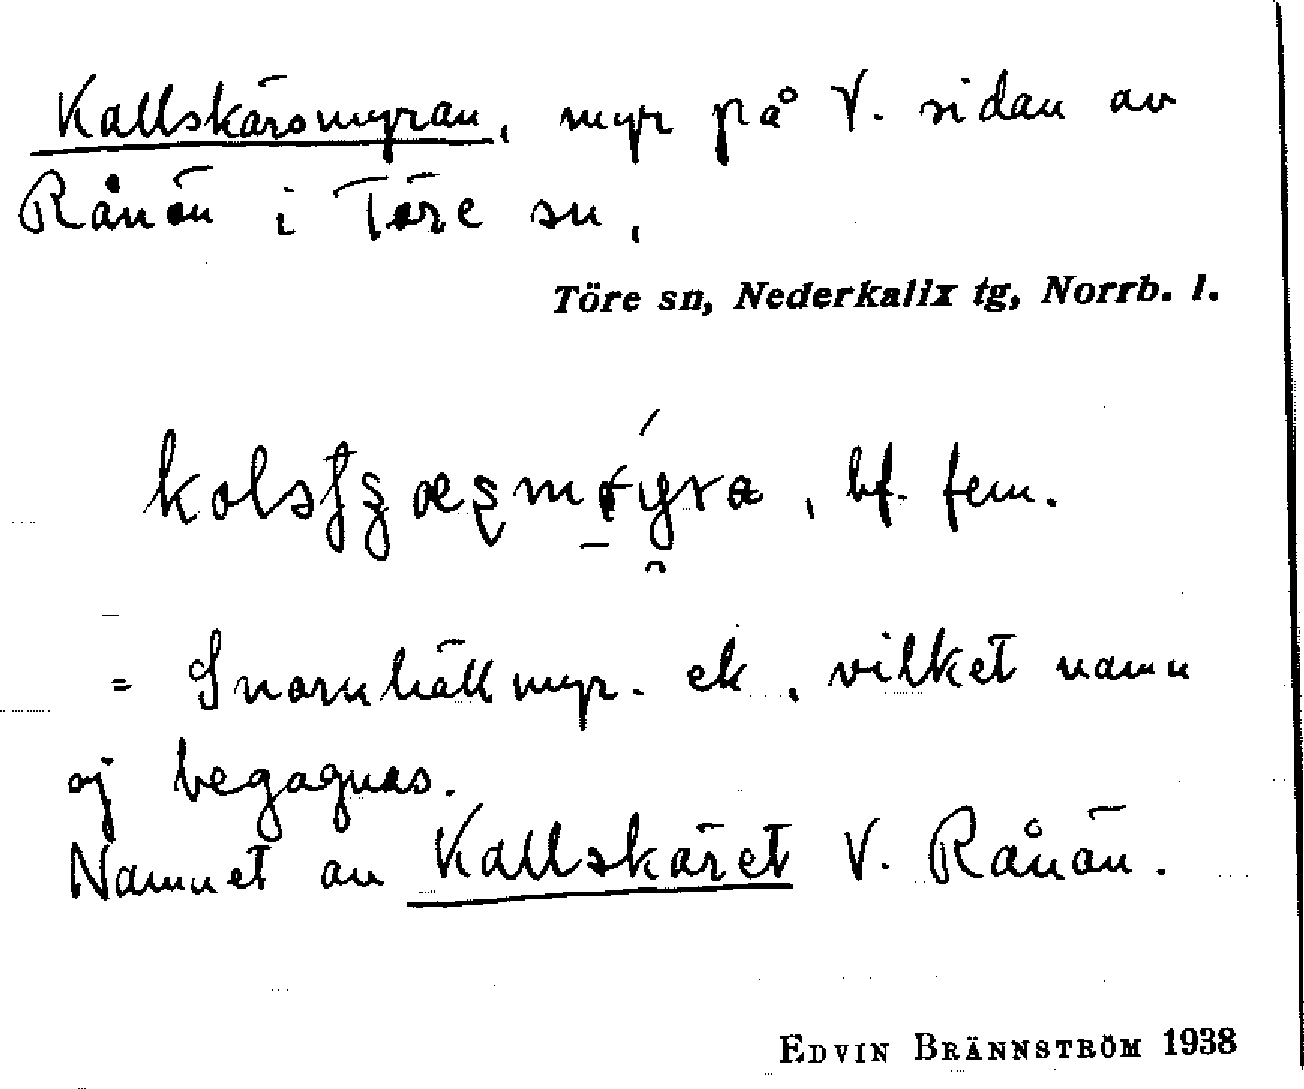 Kallskärsmyran, myr på V. sidan av
Rånön i Töre sn,
Töre sn, Nederkalix tg, Norrb. l.
, bf. fem.
= Snornhällmyr. ek, vilket namn
ej begagnas.
Namnet av Kallskäret V. Rånön.
EDVIN BRÄNNSTRÖM 1938